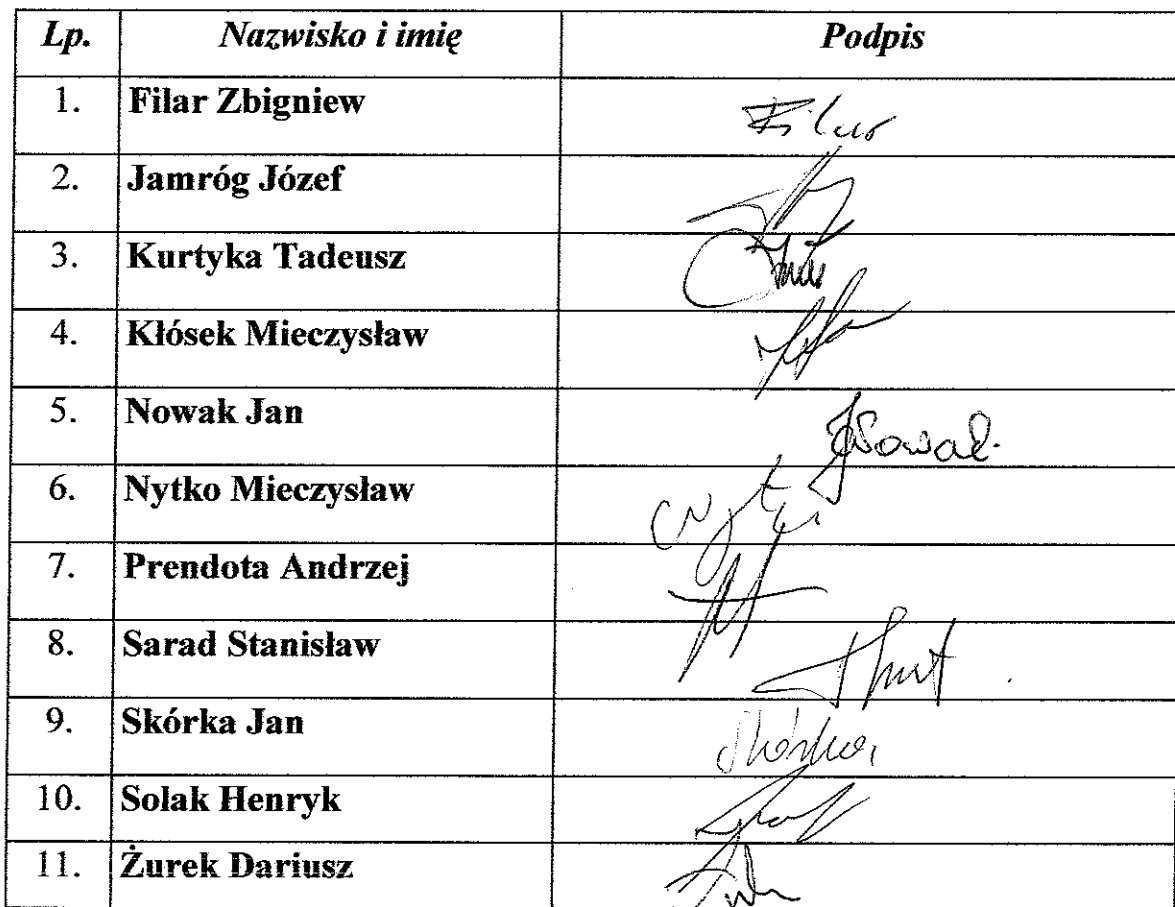 Lp. Nazwisko i imię Podpis
1. Filar Zbigniew Filar
2. Jamróg Józef
3. Kurtyka Tadeusz
4. Kłósek Mieczysław
5. Nowak Jan JNowak
6. Nytko Mieczysław
7. Prendota Andrzej
8. Sarad Stanisław
9. Skórka Jan Skórka
10. Solak Henryk
11. Żurek Dariusz